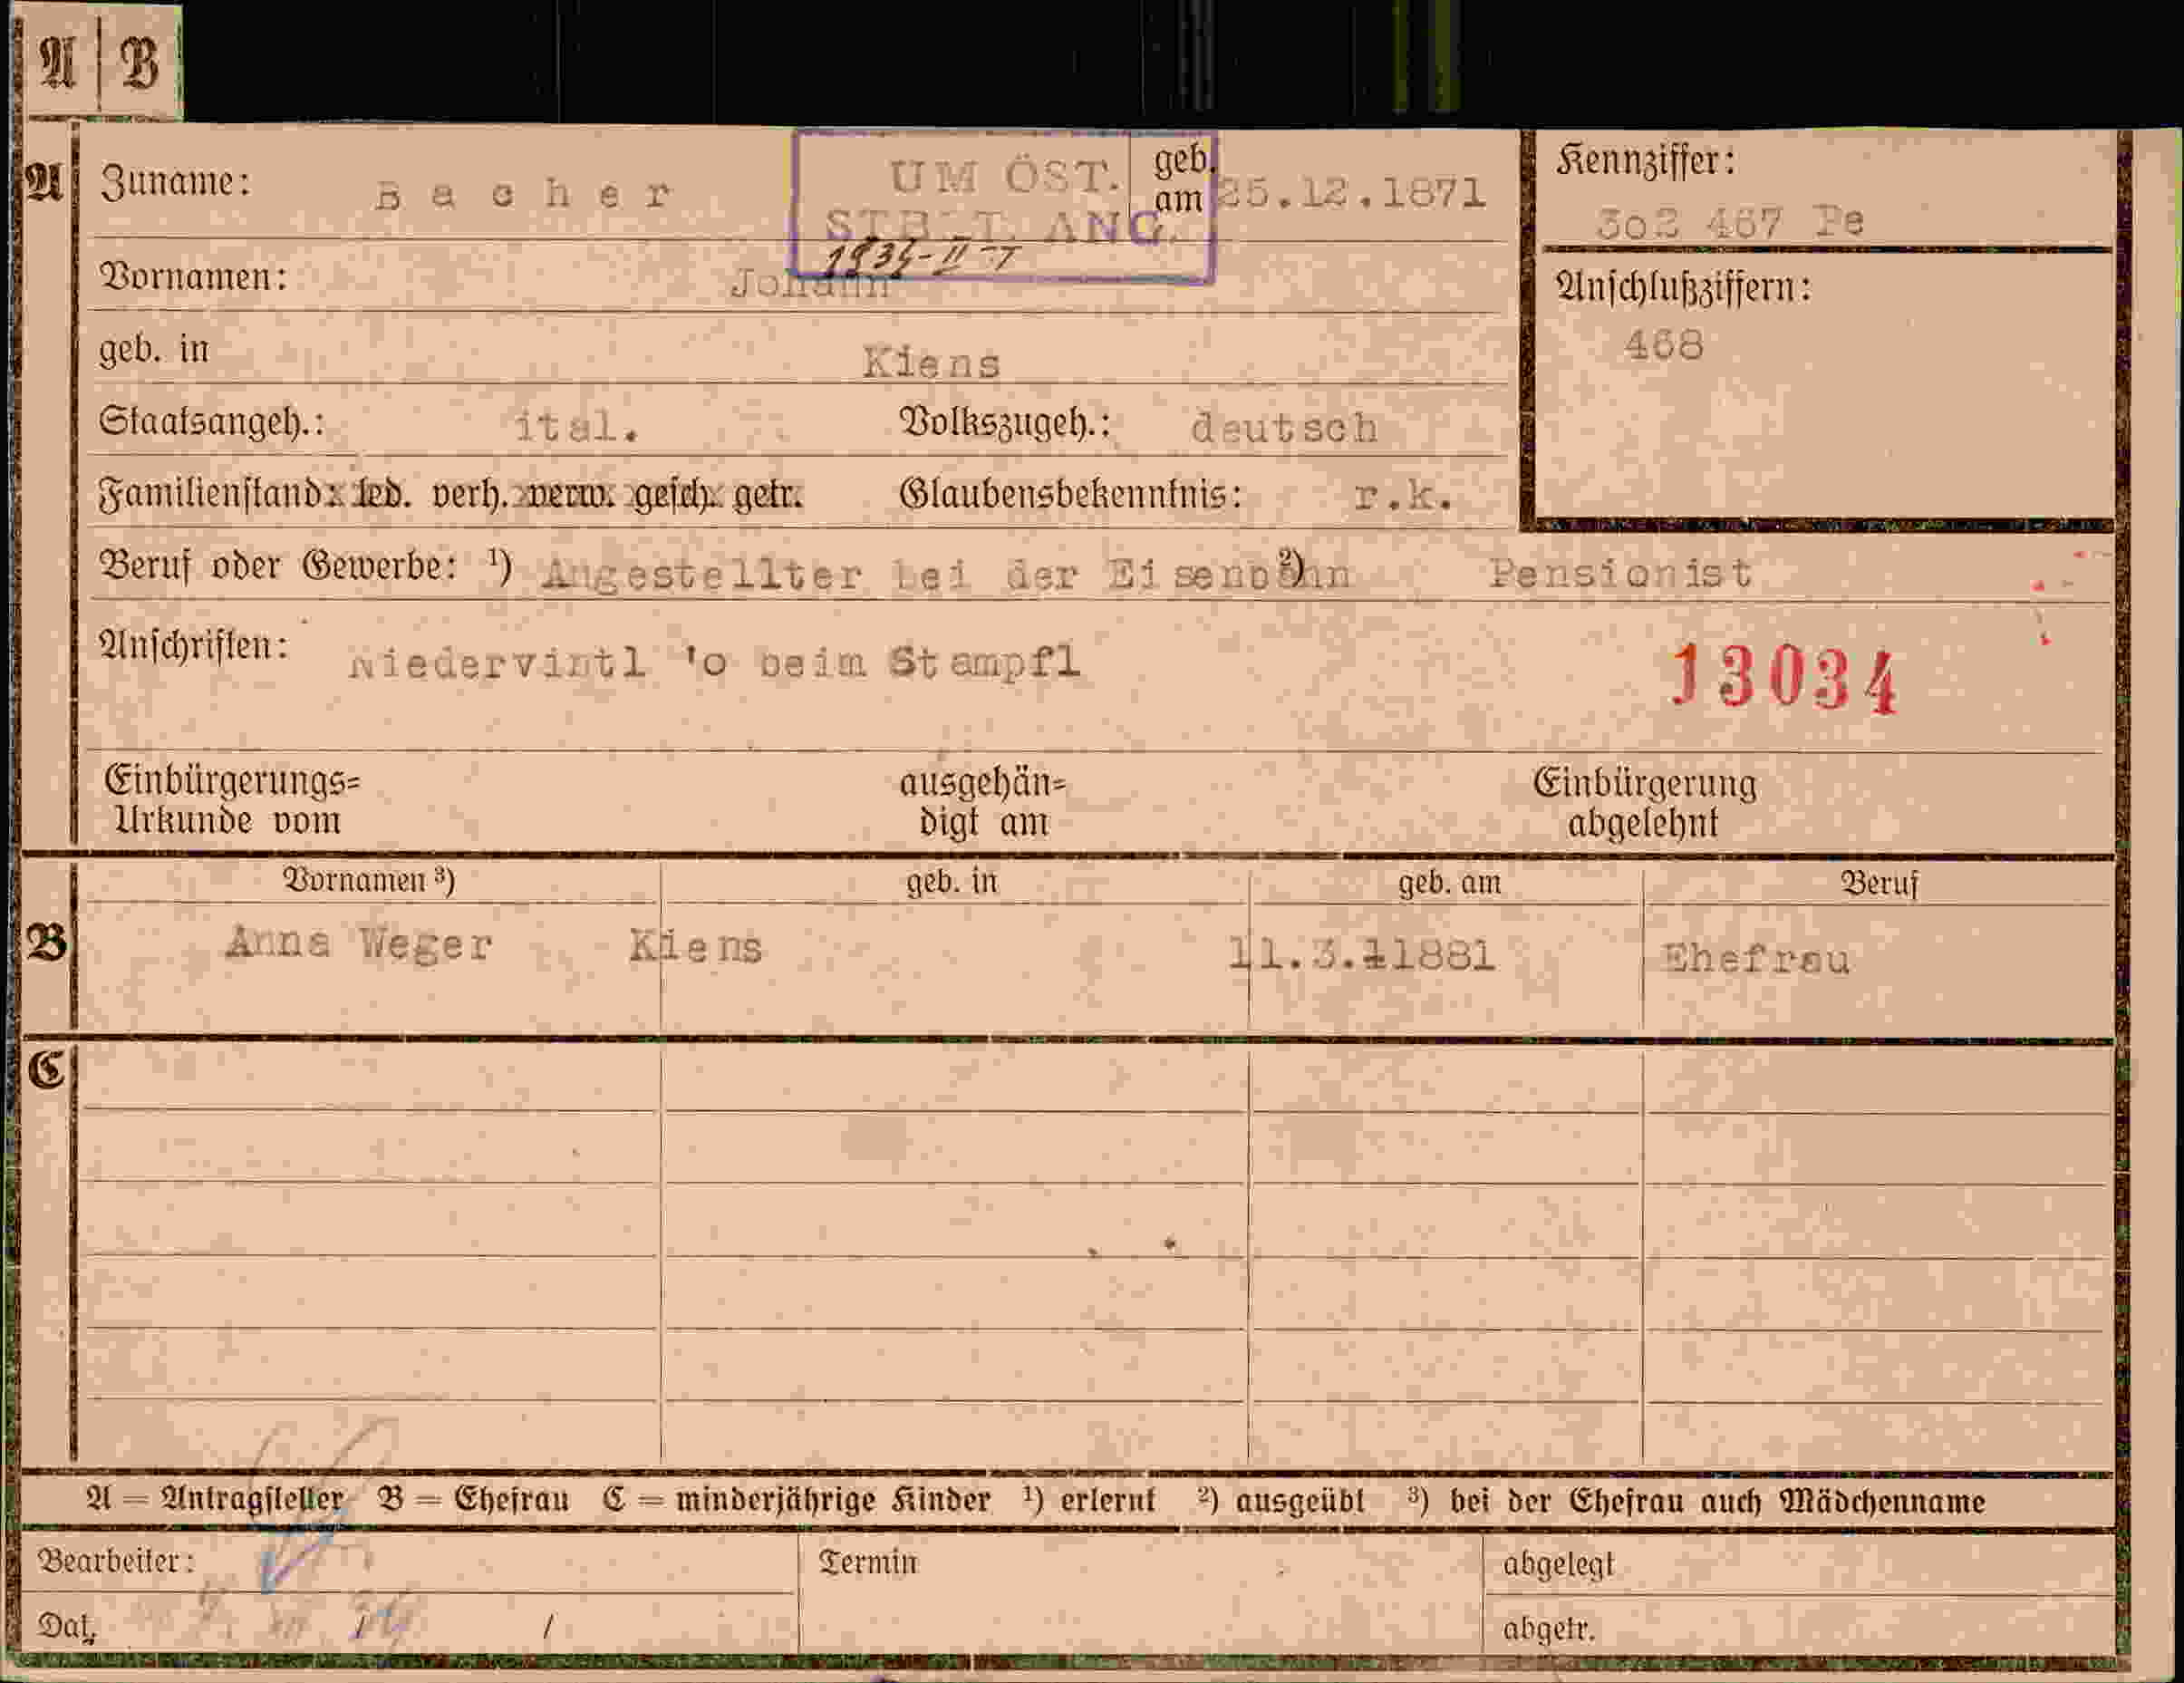 A B
A Zuname: Bacher UM ÖST. geb. am 25.12.1871 Kennziffer:
302 467 Pe
STB T. ANG.
Vornamen: Johann Anschlußziffern:
468
geb. in Kiens
Staatsangeh.: ital. Volkszugeh.: deutsch
Familienstand: led. verh. verw. gesch. getr. Glaubensbekenntnis: r.k.
Beruf oder Gewerbe: ¹) Angestellter bei der Eisenbahn ²) Pensionist
Anschriften: Niedervintl '0 beim Stampfl 13034
Einbürgerungs= ausgehän= Einbürgerung
Urkunde vom digt am abgelehnt
Vornamen ³) geb. in geb. am Beruf
B Anna Weger Kiens 11.3.11881 Ehefrau
C
A = Antragsteller B = Ehefrau C = minderjährige Kinder ¹) erlernt ²) ausgeübt ³) bei der Ehefrau auch Mädchenname
Bearbeiter: Termin abgelegt
Dat. abgetr.